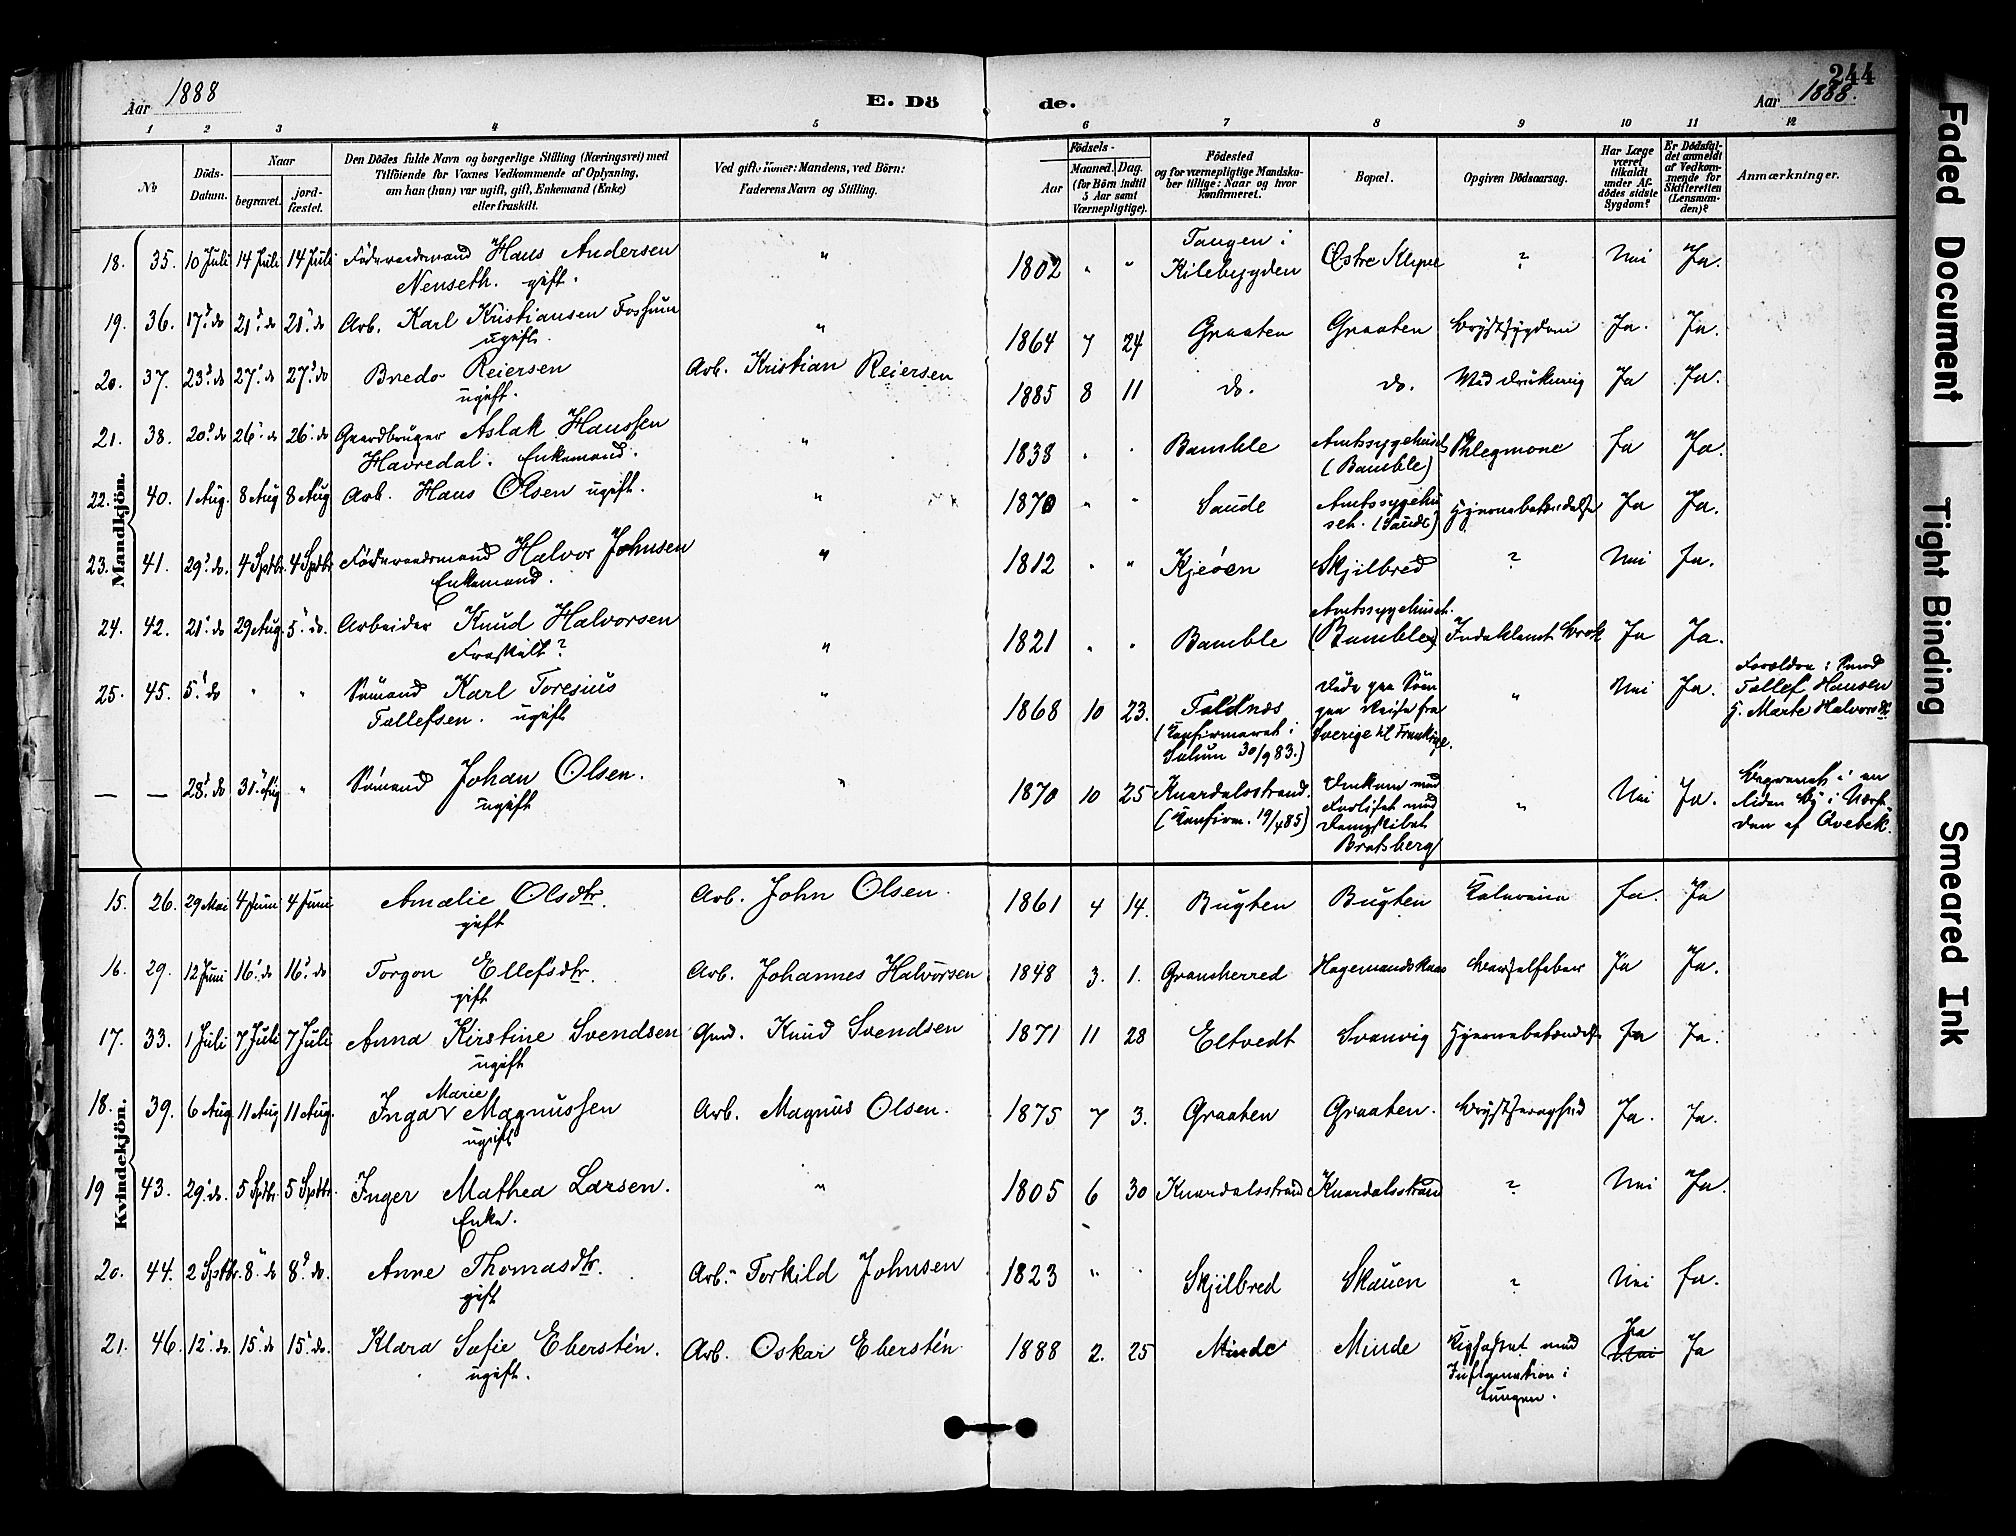 244
Aar 1888
E. Dö
de.
Aar 1888.
1 2 3 4 5 6 7 8 9 10 11 12
No
Döds-
Datum.
Naar
begravet.
jord-
fæstet.
Den Dödes fulde Navn og borgerlige Stilling (Næringsvei) med
Tilföiende for Voxnes Vedkommende af Oplysning,
om han (hun) var ugift, gift, Enkemand (Enke)
eller fraskilt.
Ved gifte Koner: Mandens, ved Börn:
Faderens Navn og Stilling.
Födsels-
Aar
Maaned.
Dag.
(for Börn indtil
5 Aar samt
Værnepligtige).
Födested
og for værnepligtige Mandska-
ber tillige: Naar og hvor
konfirmeret.
Bopæl.
Opgiven Dödsaarsag.
Har Læge
været
tilkaldt
under Af-
dödes sidste
Sygdom?
Er Dödsfal-
det anmeldt
af Vedkom-
mende for
Skifteretten
(Lensman-
den)?
Anmærkninger.
Mandkjön.
18. 35. 10 Juli 14 Juli 14 Juli Föderaadsmand Hans Andersen " 1802 " " Tangen i
Nenseth. gift. Kilebygden Østre Klype ? Nei Ja.
19. 36. 17. do 21. do 21. do Arb. Karl Kristiansen Fossum
ugift. " 1864 7 24 Graaten Graaten Brystsygdom Ja. Ja.
20. 37. 23. do 27. do 27. do Bredo Reiersen Arb. Kristian Reiersen
ugift. 1885 8 11 do. do. Ved drukning Ja Ja.
21. 38. 20. do 26. do 26. do Gaardbruger Aslak Hanssen " 1838 " " Bamble Amtssygehuset Phlegmone Ja Ja.
Havredal. Enkemand. (Bamble)
22. 40. 1 Aug. 8 Aug 8 Aug Arb. Hans Olsen ugift. " 1870 " " Saude Amtssygehu
set. (Saude) Hjernebetændelse Ja Ja.
23. 41. 29. do. 4 Septbr. 4 Septbr. Föderaadsmand Halvor Johnsen " 1812 " " Kjeöen Skjilbred ? Nei Ja.
Enkemand.
24. 42. 21. do 29 Aug. 5. do. Arbeider Knud Halvorsen " 1821 " " Bamble Amtssygehuset.
Fraskilt? (Bamble) Indeklemt Brok Ja Ja.
25. 45. 5. do " " Sömand Karl Toresius " 1868 10 23. Foldnæs Döde paa Söen " Nei Ja. Forældre: Smed
Tollefsen. ugift (Konfirmeret i paa Reise fra Tollef Hansen
Solum 30/9 83.) Sverige til Frankrige. H. Marte Halvorsdtr
— — 28. do 31. Aug " Sömand Johan Olsen. " 1870 10 25 Knardalsstrand. Omkom ved " Nei Ja. Begravet i en
ugift (Konfirm. 19/4 85) Forliset med liden By i Nærh.
Dampskibet den af Qvebek.
Bratsberg
Kvindekjön.
15. 26. 29 Mai 4 Juni 4 Juni Amalie Olsdtr. Arb. John Olsen. 1861 4 14. Bugten Bugten Ja. Ja
gift
16. 29. 12 Juni 16. do 16. do Torgon Ellefsdtr. Arb. Johannes Halvorsen 1848 3. 1. Gransherred Barselfeber Ja Ja.
gift
17. 33. 1 Juli 7 Juli 7 Juli Anna Kirstine Svendsen Gmd. Knud Svendsen 1871 11 28 Eltvedt Svanvig Hjernebetændelse Ja Ja.
ugift
18. 39. 6 Aug 11 Aug 11 Aug. Inga Marie Magnussen Arb. Magnus Olsen. 1875 7 3. Graaten Graaten. Brystsvaghed Ja. Ja.
ugift
19 43. 29. do. 5 Septbr. 5 Septbr. Inger Mathea Larsen. " 1805 6 30 Knardalsstrand Knardalsstrand ? Nei Ja.
Enke.
20. 44. 2 Septbr. 8. do 8. do. Anne Thomasdtr. Arb. Torkild Johnsen 1823 " " Skjilbred Skauen ? Nei Ja.
gift
21. 46. 12. do. 15. do 15. do. Klara Sofie Eberstén. Arb. Oskar Eberstén 1888 2. 25 Minde Minde med Ja Nei Ja
ugift. Inflamation i
Lungen.
Faded Document
Tight Binding
Smeared Ink